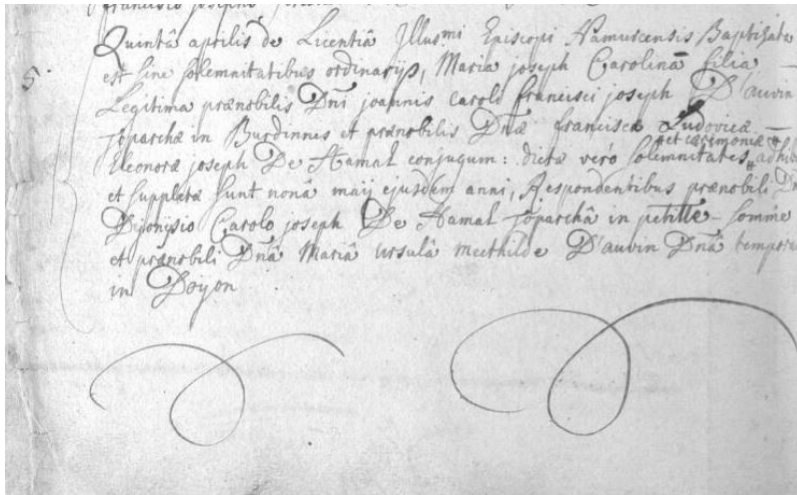 francisco josepho
Quintâ aprilis de Licentiâ Illus.mi Episcopi Namurcensis Baptizata
5. est sine solemnitatibus ordinarijs, Maria joseph Carolina filia —
Legitima prænobilis Dni joannis caroli francisci joseph D'auvin
toparchæ in Burdinnes et prænobilis Dnæ francisca Ludovicæ —
et cæremoniæ
Eleonoræ joseph De Hamal conjugum : dictæ verò solemnitates adhib
et suppletæ sunt nonâ maij ejusdem anni, Respondentibus prænobili Dno
Dijonysio Carolo joseph De Hamal toparchâ in petitte-somme
et prænobili Dnâ Mariâ ursulâ mechtilde D'auvin Dnâ tempora
in Doyon